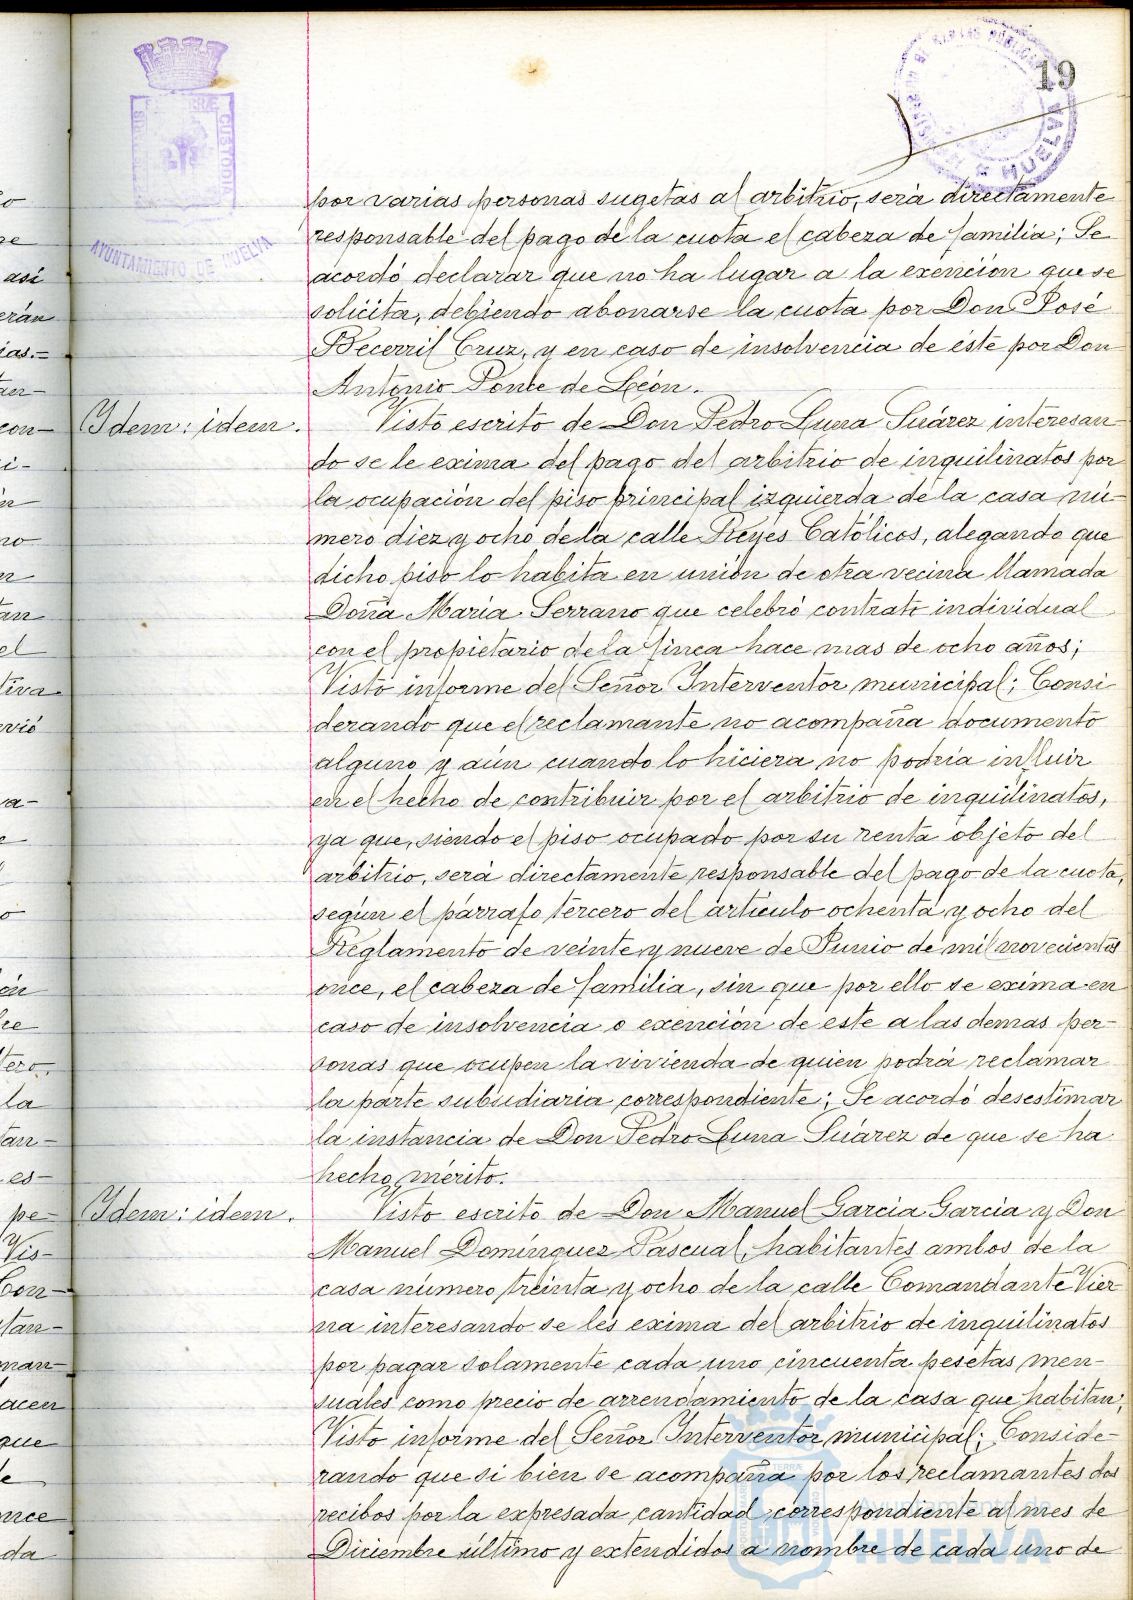 19
HUELVA
CUSTODIA
AYUNTAMIENTO DE HUELVA
por varias personas sugetas al arbitrio, será directamente
responsable del pago de la cuota el cabeza de familia; Se
acordó declarar que no ha lugar a la exención que se
solicita, debiendo abonarse la cuota por Don José
Becerril Cruz, y en caso de insolvencia de éste por Don
Antonio Ponce de León.
Idem: idem.
Visto escrito de Don Pedro Luna Suárez interesan-
do se le exima del pago del arbitrio de inquilinatos por
la ocupación del piso principal izquierda de la casa nú-
mero diez y ocho de la calle Reyes Católicos, alegando que
dicho piso lo habita en unión de otra vecina llamada
Doña María Serrano que celebró contrato individual
con el propietario de la finca hace mas de ocho años;
Visto informe del Señor Interventor municipal; Consi
derando que el reclamante no acompaña documento
alguno y aún cuando lo hiciera no podría influir
en el hecho de contribuir por el arbitrio de inquilinatos,
ya que, siendo el piso ocupado por su renta objeto del
arbitrio, será directamente responsable del pago de la cuota,
según el párrafo tercero del artículo ochenta y ocho del
Reglamento de veinte y nueve de Junio de mil novecientos
once, el cabeza de familia, sin que por ello se exima en
caso de insolvencia o exención de este a las demas per-
sonas que ocupen la vivienda de quien podrá reclamar
la parte subsidiaria correspondiente; Se acordó desestimar
la instancia de Don Pedro Luna Suárez de que se ha
hecho mérito.
Idem: idem.
Visto escrito de Don Manuel García García y Don
Manuel Domínguez Pascual, habitantes ambos de la
casa número treinta y ocho de la calle Comandante Vier
na interesando se les exima del arbitrio de inquilinatos
por pagar solamente cada uno cincuenta pesetas men-
suales como precio de arrendamiento de la casa que habitan;
Visto informe del Señor Interventor municipal; Conside-
rando que si bien se acompaña por los reclamantes dos
recibos por la expresada cantidad correspondiente al mes de
Diciembre último y extendidos a nombre de cada uno de
Ayuntamiento de
HUELVA